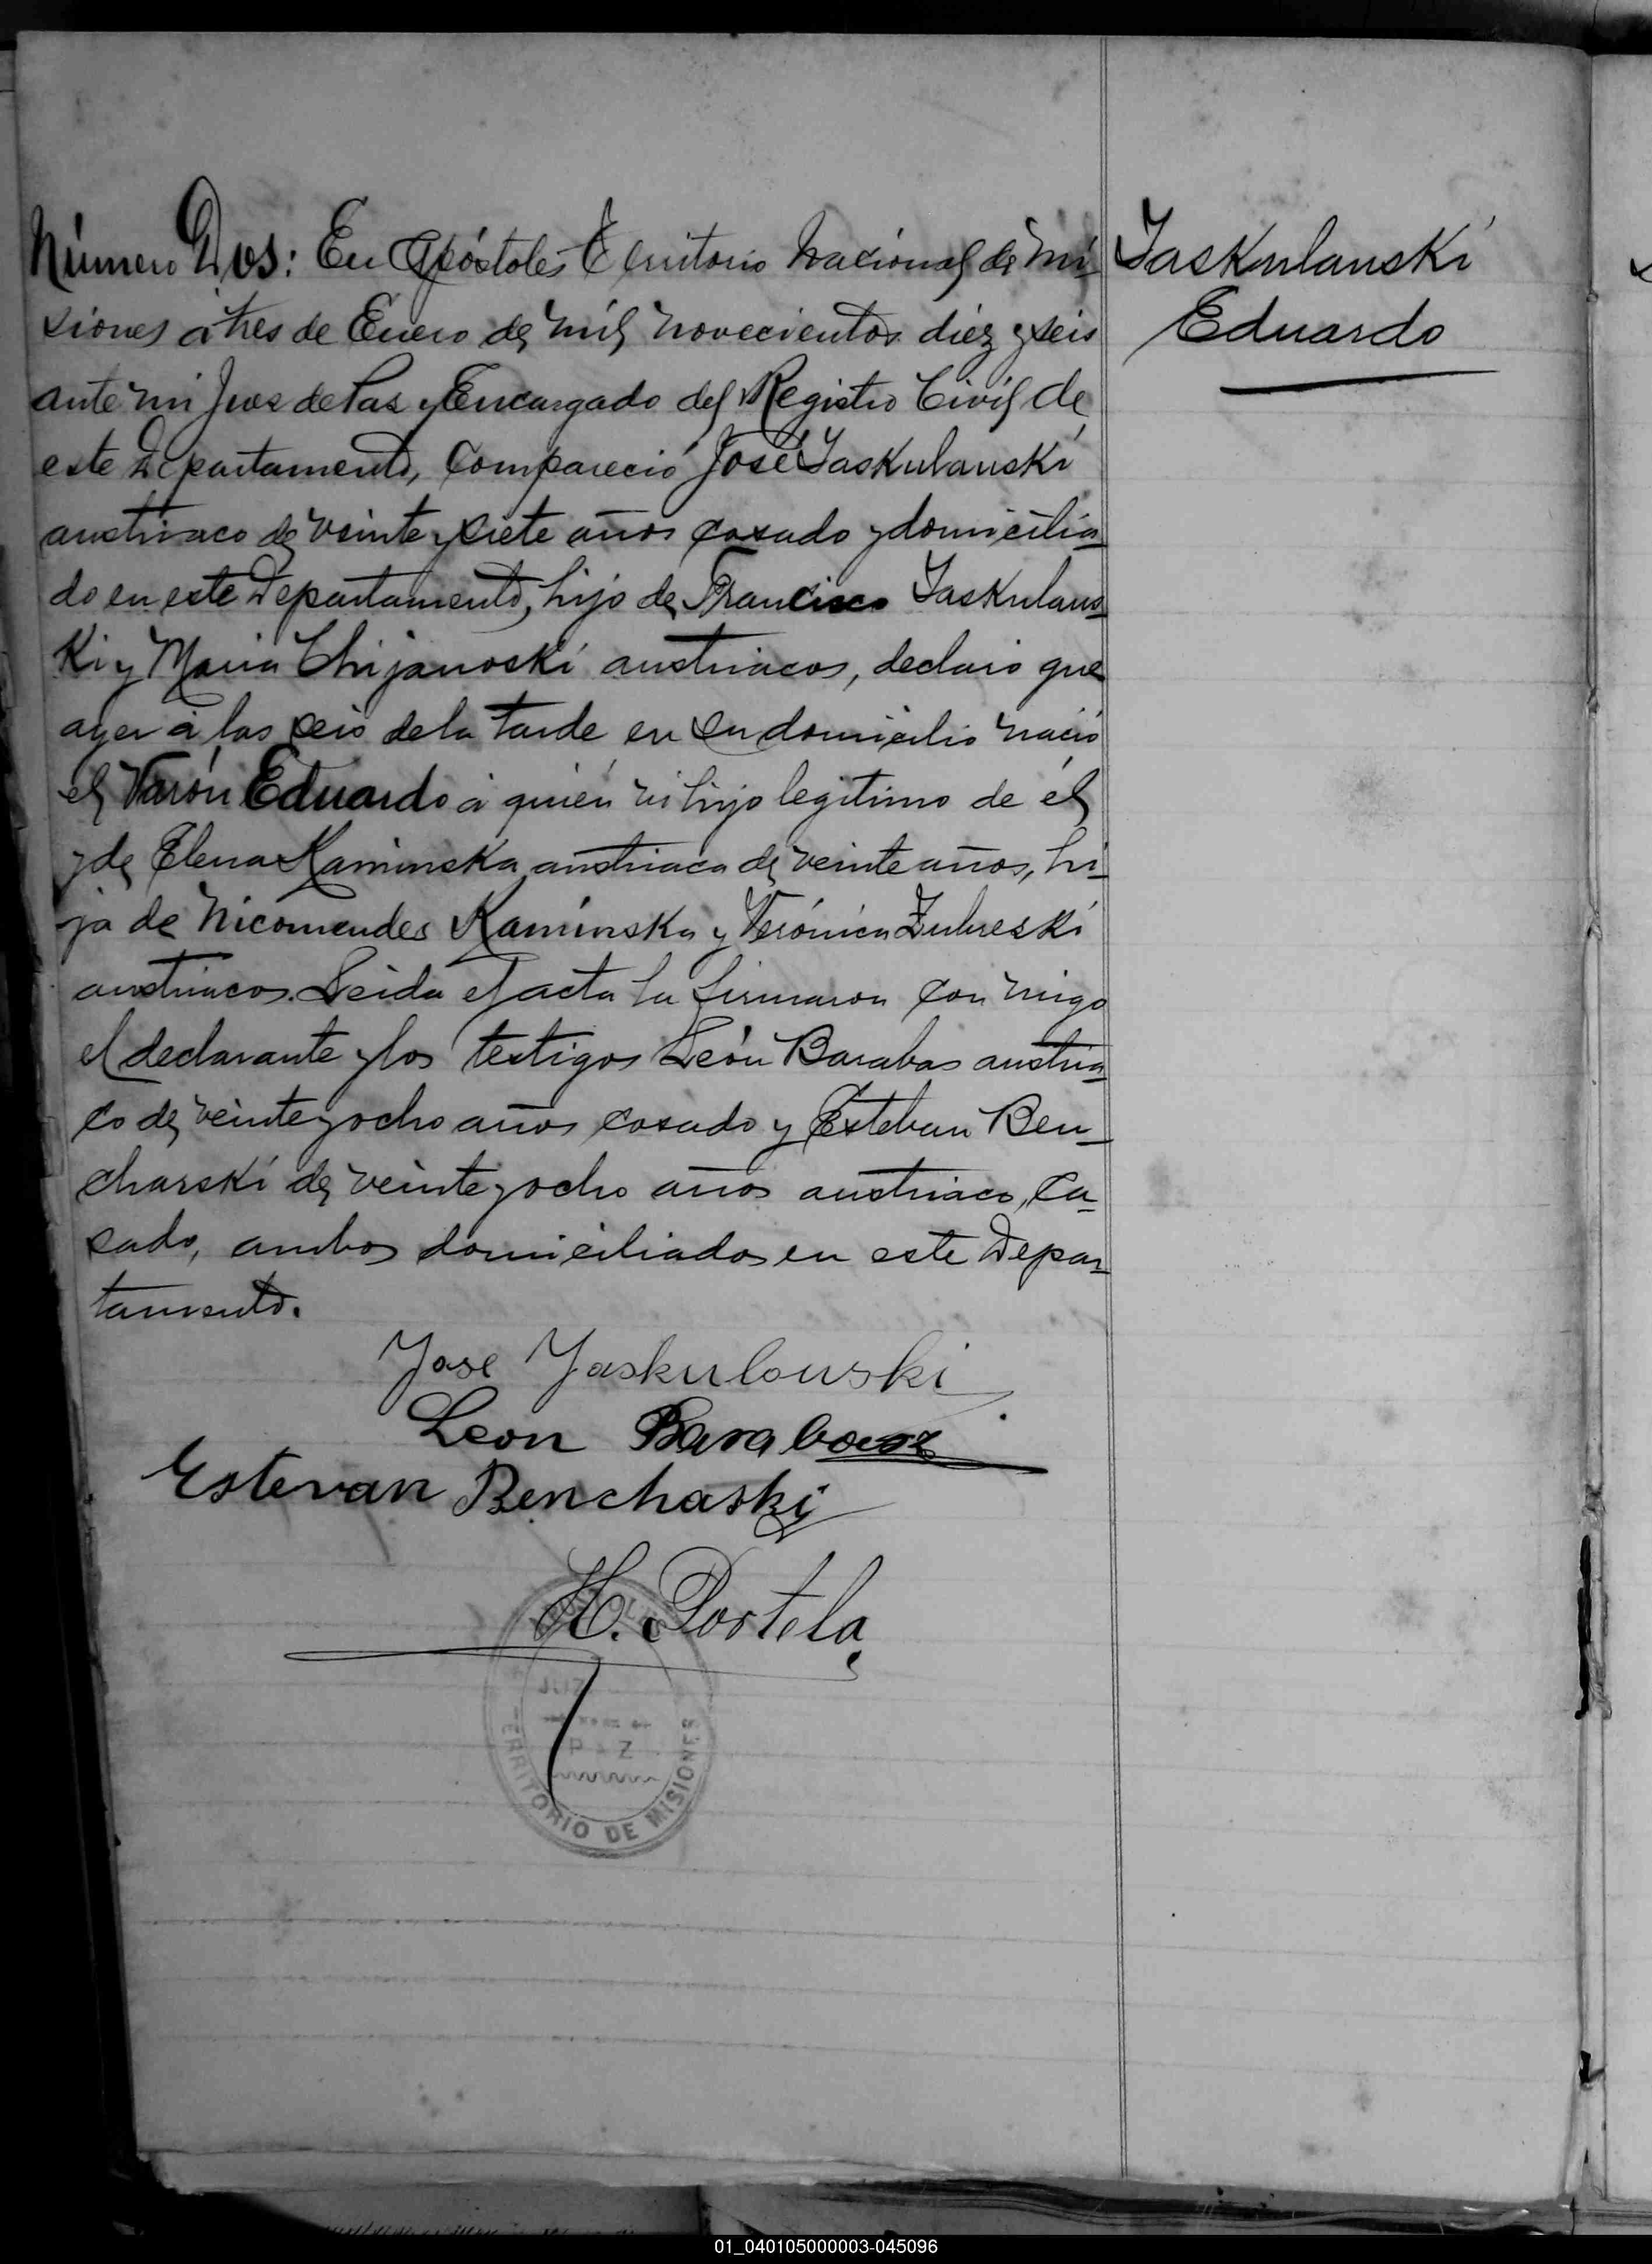 Número Dos: En Apóstoles Territorio Nacional de Mi
siones á tres de Enero de mil novecientos diez y seis
ante mi Juez de Paz y Encargado del Registro Civil de
este Departamento, Compareció José Jaskulanski
austriaco de veinte y siete años casado y domicilia
do en este Departamento, hijo de Francisco Jaskulans
ki y Maria Chijanoski austriacos, declaro que
ayer á las seis de la tarde en su domicilio nació
el Varón Eduardo á quién vi hijo legitimo de él
y de Elena Kaminska austriaca de veinte años, hi
ja de Nicomendes Kaminska y Verónica Zubreski
austriacos. Leida el acta la firmaron con migo
el declarante y los testigos León Barabas austria
co de veinte y ocho años casado y Esteban Ben
charski de veinte y ocho años austriaco, ca
sado, ambos domiciliados en este Depar
tamento.
Jaskulanski
Eduardo
Jose Jaskulouski
Leon Barabasz
Estevan Benchaski
H. Portela
JUZ
PAZ
TERRITORIO DE MISIONES
01_040105000003-045096